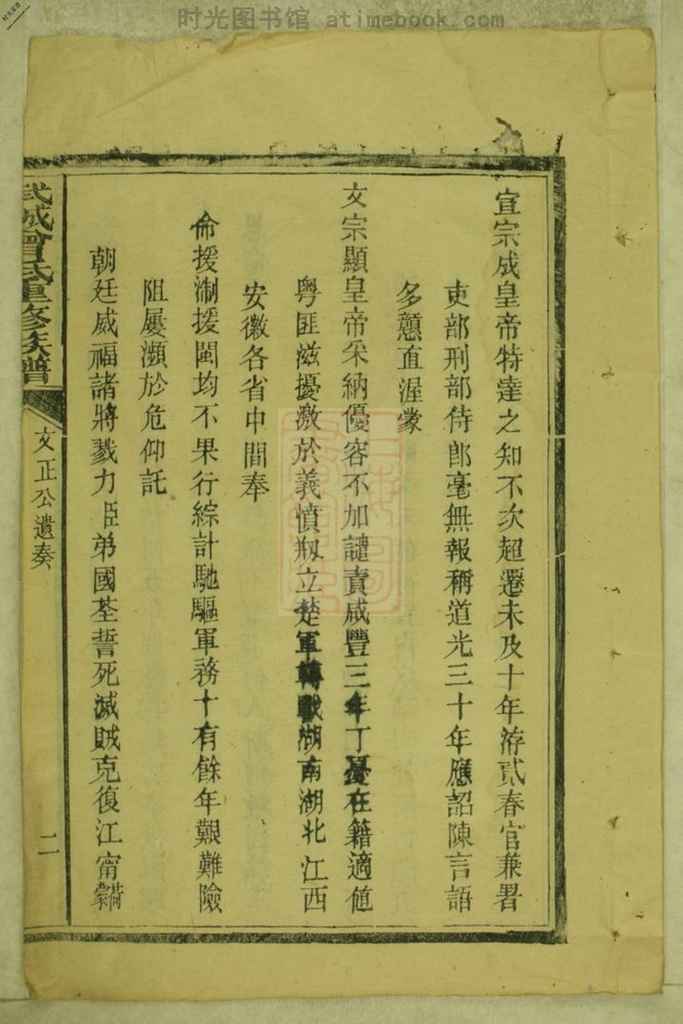 时光图书馆 atimebook.com
宣宗成皇帝特達之知不次超遷未及十年洊貳春官兼署
吏部刑部侍郎毫無報稱道光三十年應詔陳言語
多戇直渥蒙
文宗顯皇帝采納優容不加譴責咸豐三年丁憂在籍適値
粤匪滋擾激於義憤剏立楚軍轉戰湖南湖北江西
安徽各省中間奉
命援浙援閩均不果行綜計馳驅軍務十有餘年艱難險
阻屢瀕於危仰託
朝廷威福諸將戮力臣弟國荃誓死滅賊克復江甯荷蒙
武城曾氏重修族譜
文正公遺奏
二